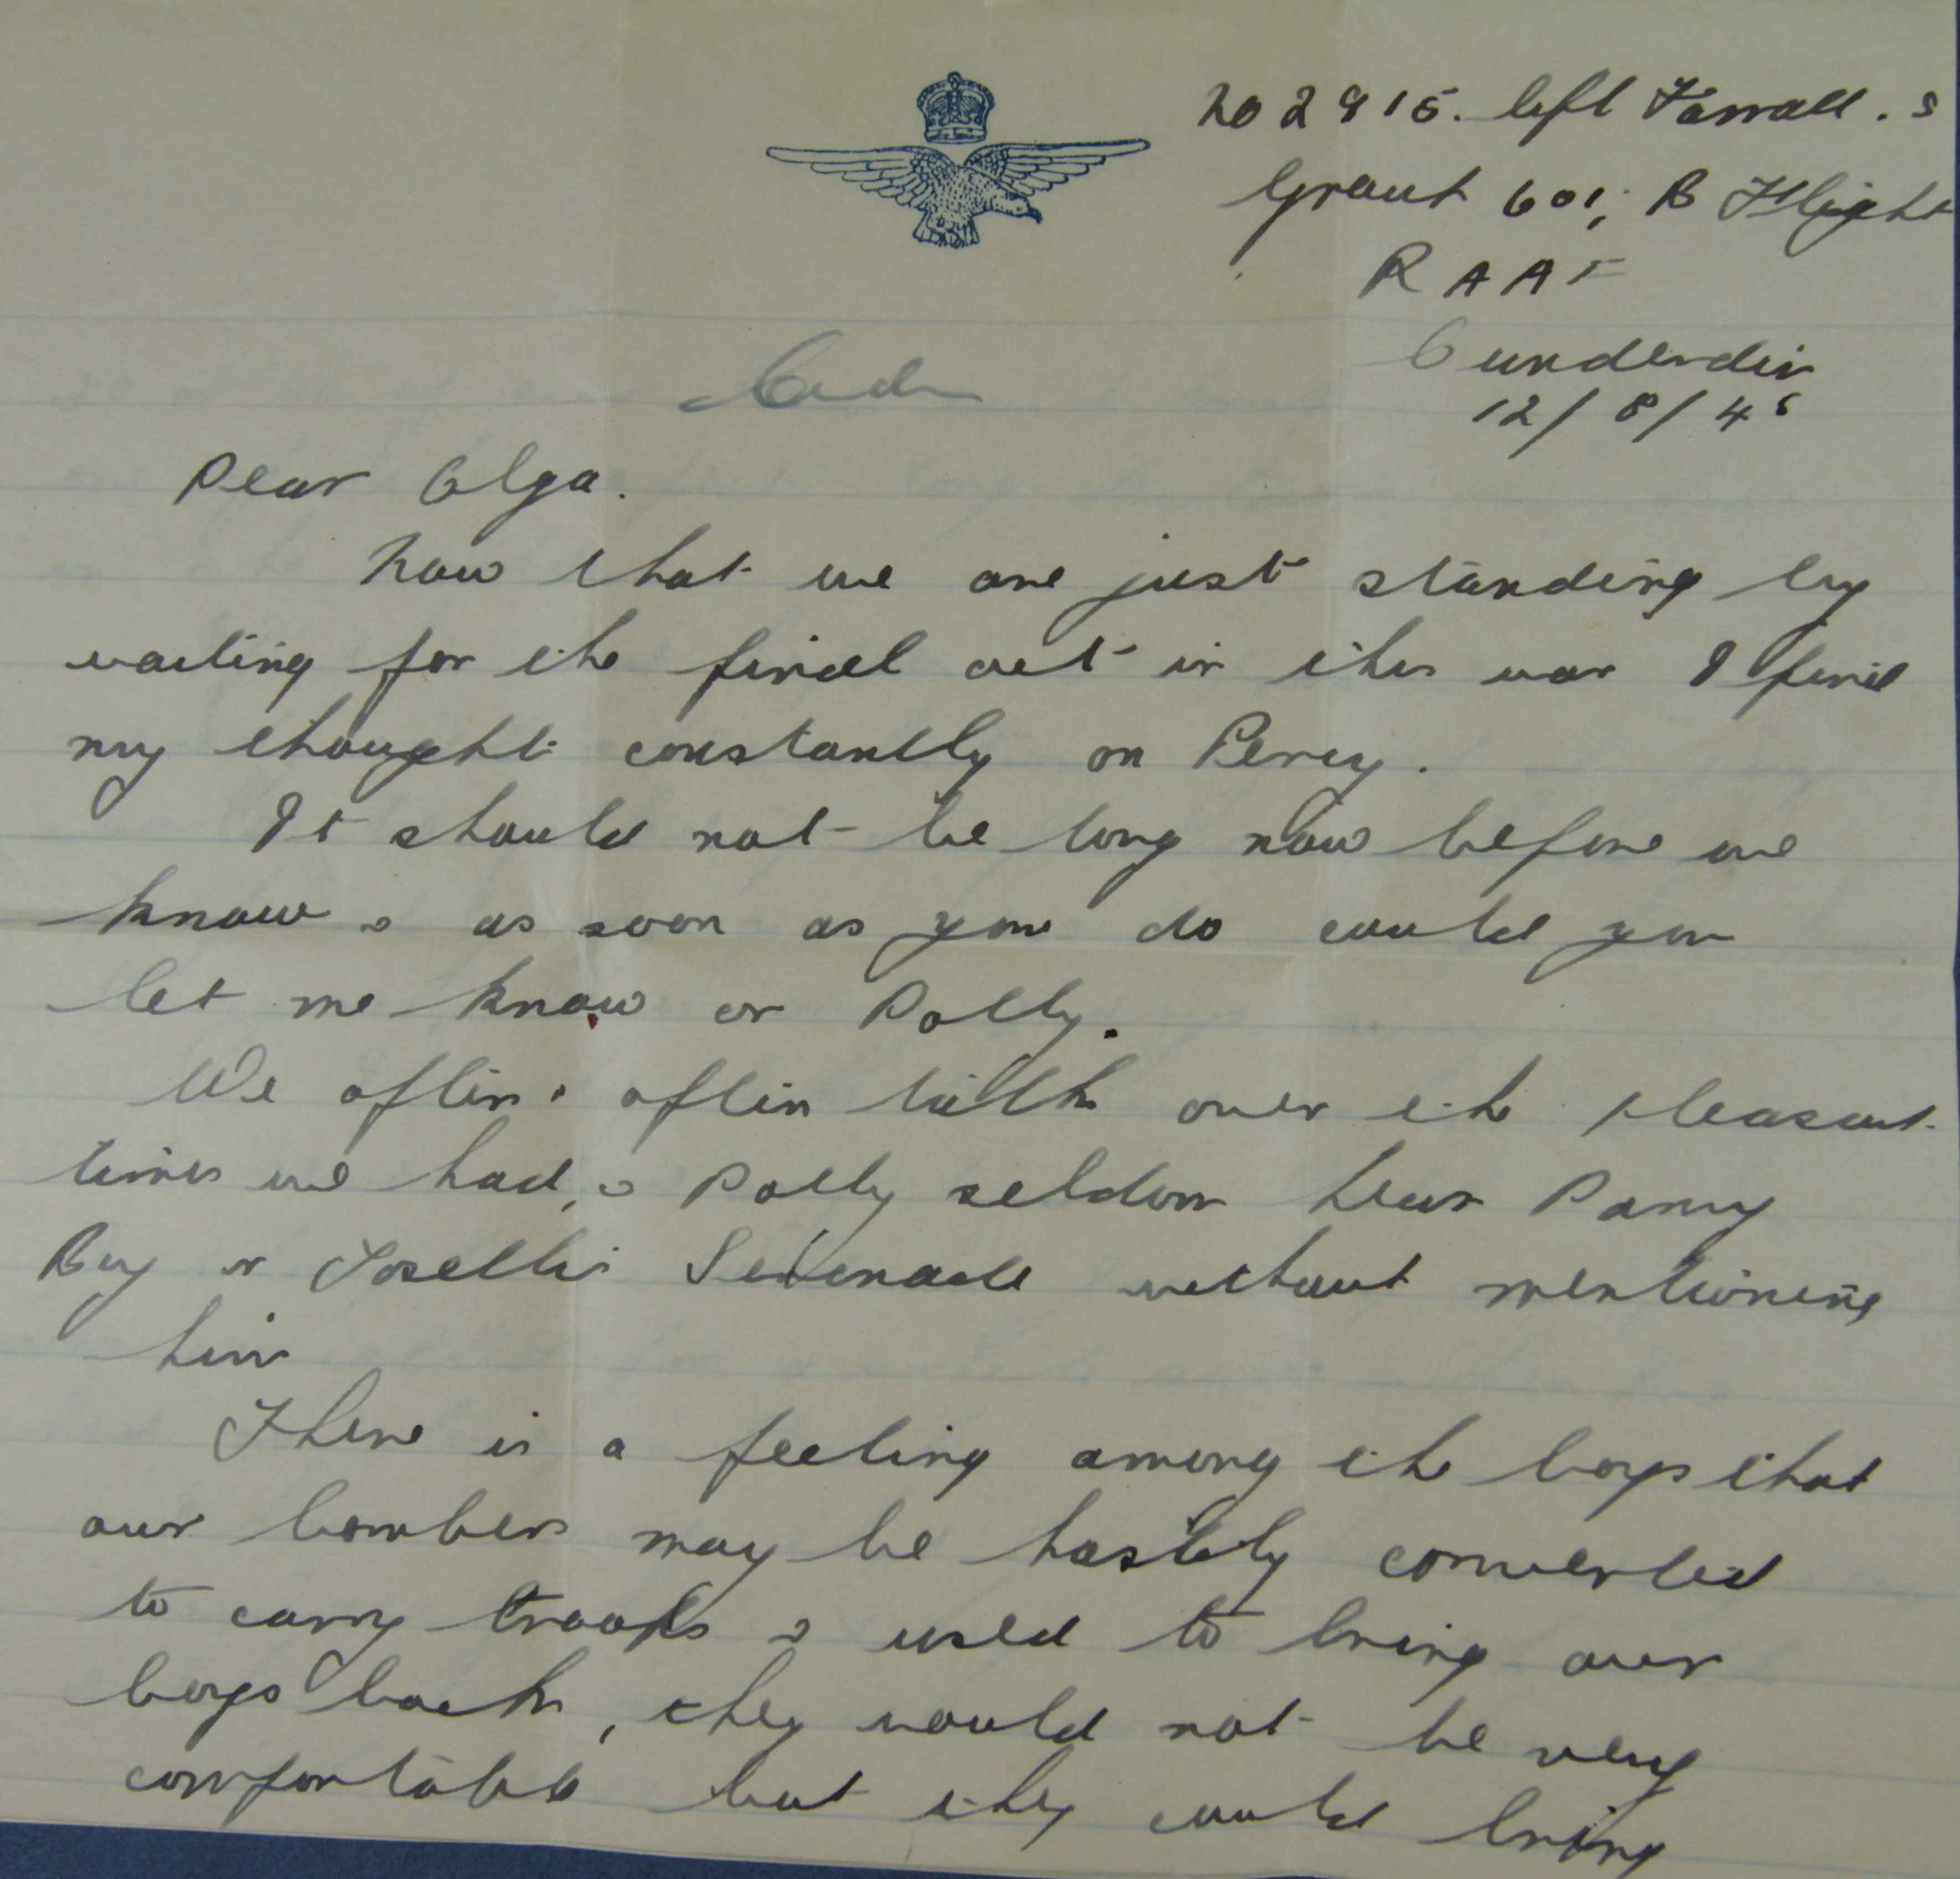 202915. Cpl Farrall. S
Grout 601; B Flight
RAAF
Cunderdin
12/8/45
Dear Olga.
Now that we are just standing by
waiting for the final act in this war I find
my thought constantly on Percy.
It should not be long now before we
know & as soon as you do could you
let me know or Polly.
We often & often talk over the pleasant
times we had, & Polly seldom hear Danny
Boy or Toselli's Serenade without mentioning
him
There is a feeling among the boys that
our bombers may be hastily converted
to carry troops & used to bring our
boys back, they would not be very
comfortable but they could bring